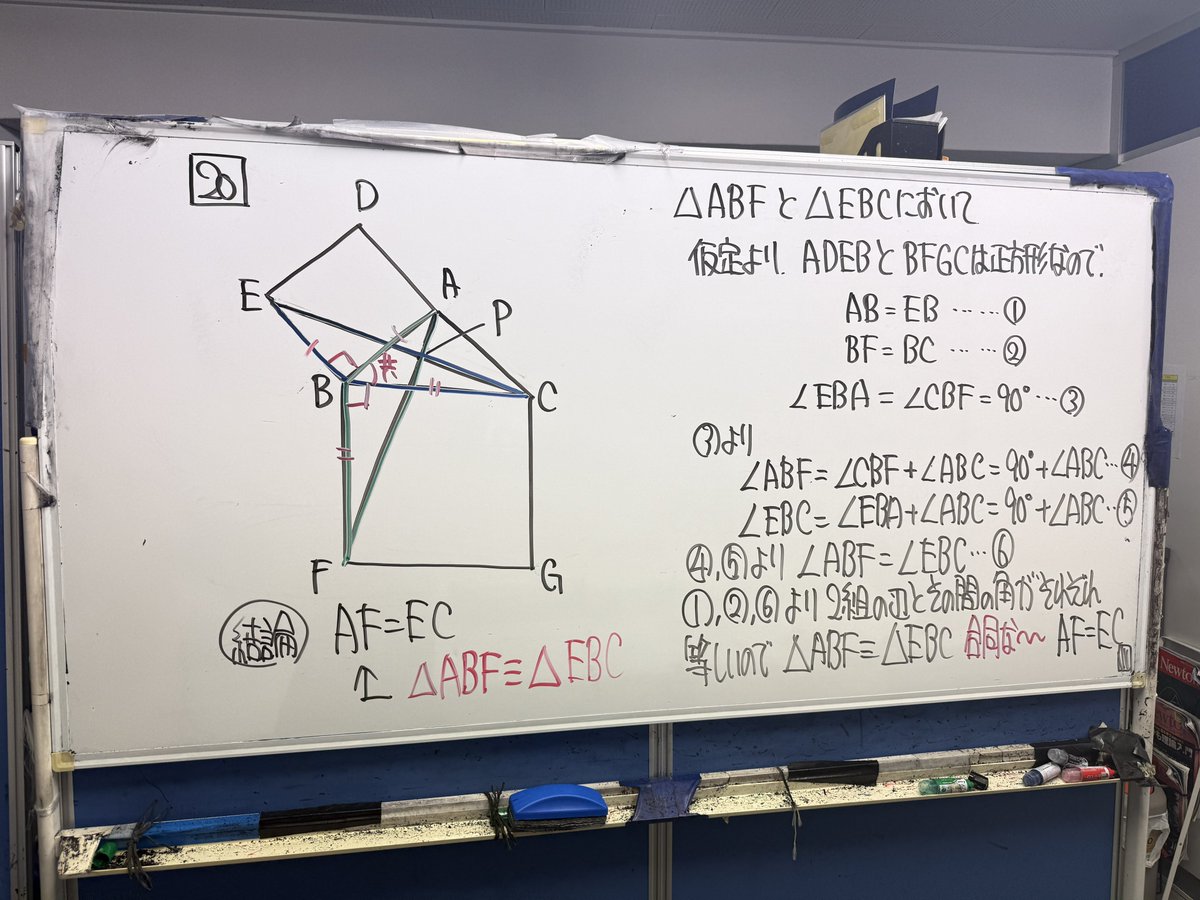 20
D
E
A
P
B
C
F
G
結論 AF=EC
↑ △ABF≡△EBC
△ABFと△EBCにおいて
仮定より、ADEBとBFGCは正方形なので、
AB=EB……①
BF=BC……②
∠EBA=∠CBF=90°…③
③より
∠ABF=∠CBF+∠ABC=90°+∠ABC…④
∠EBC=∠EBA+∠ABC=90°+∠ABC…⑤
④,⑤より ∠ABF=∠EBC…⑥
①,②,⑥より2組の辺とその間の角がそれぞれ
等しいので △ABF≡△EBC 合同な〜 AF=EC
Newto